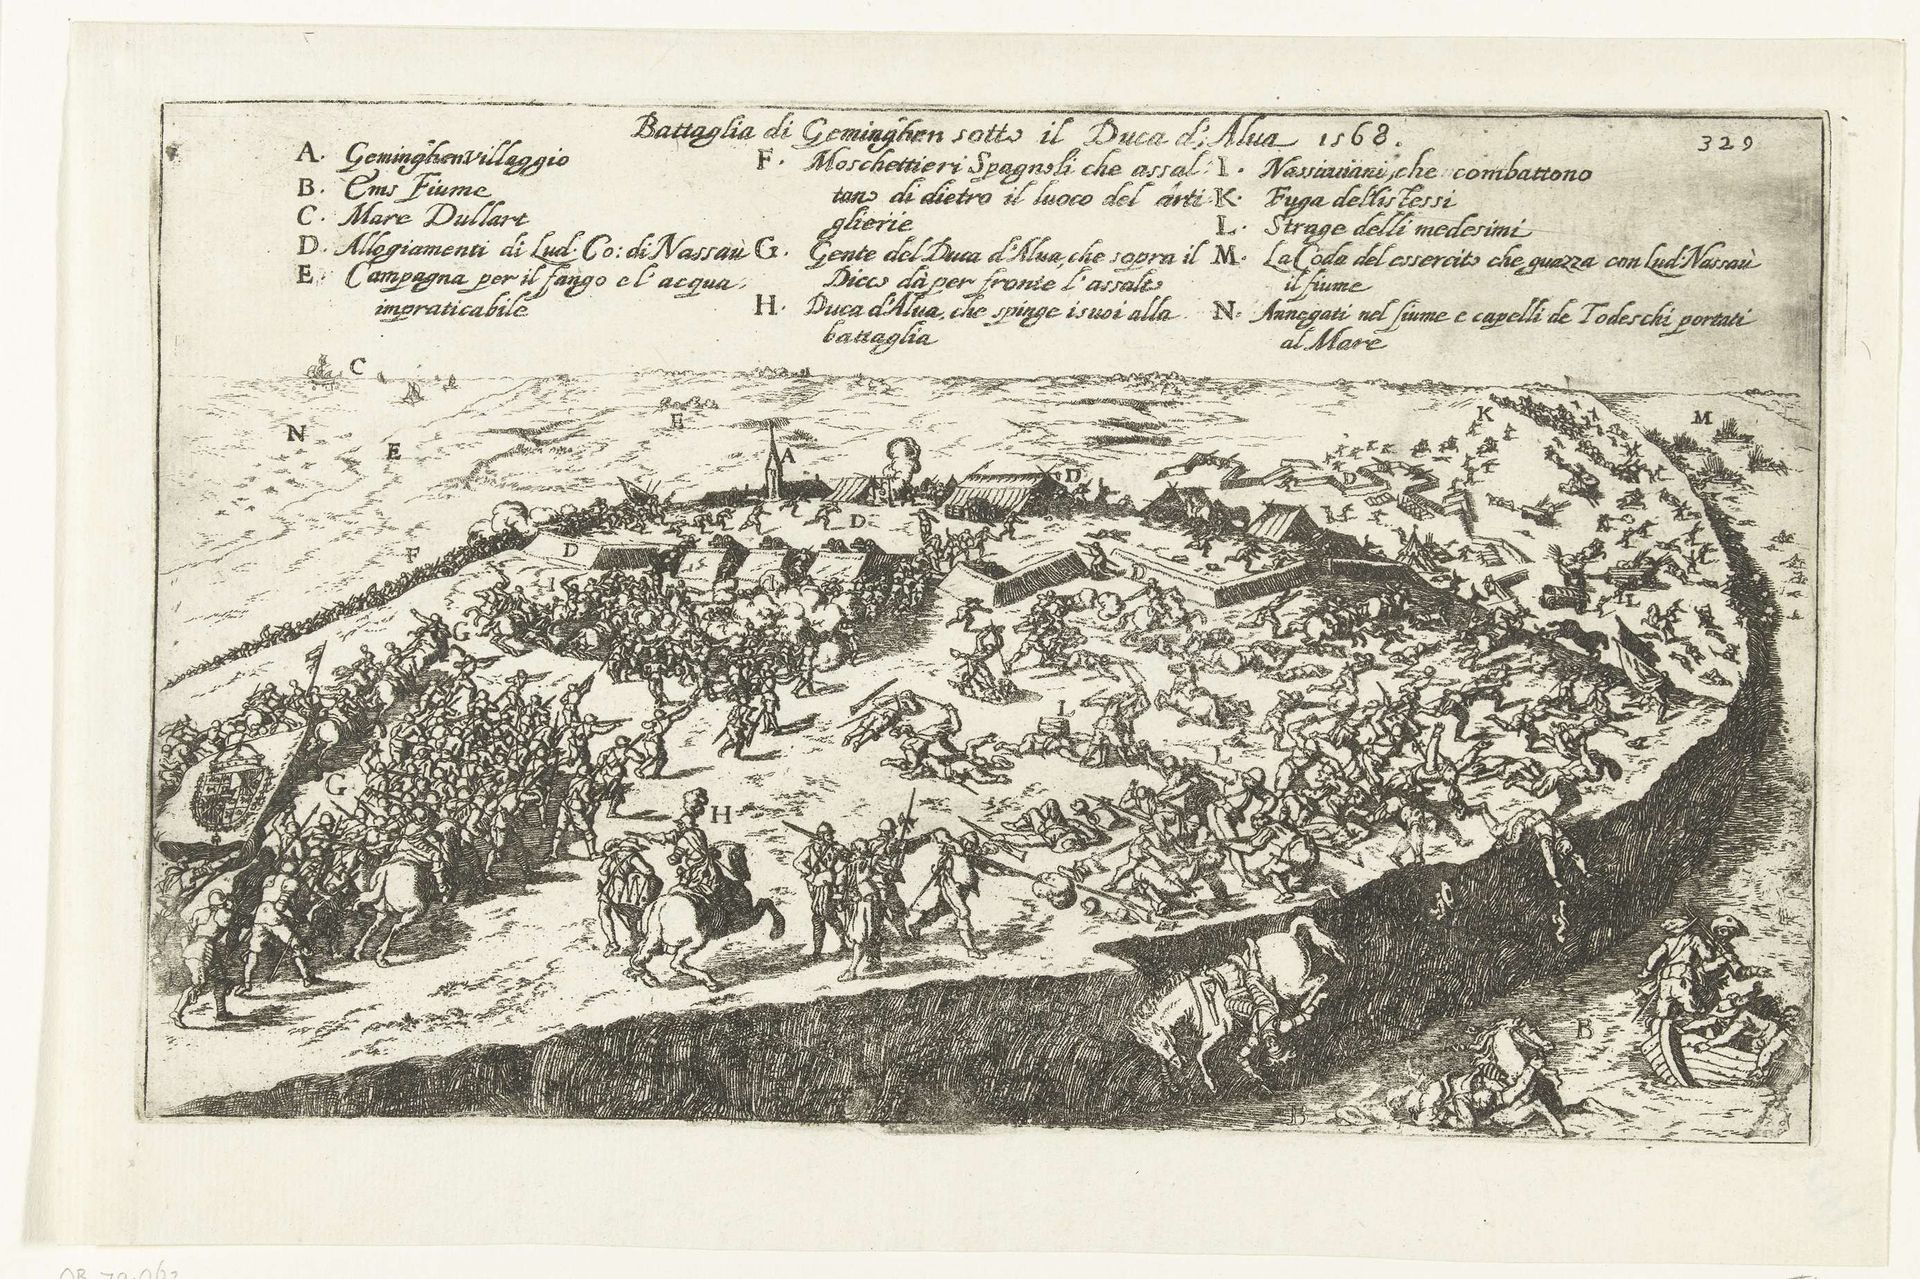 Battaglia di Geminghen sotto il Duca d'Alua 1568.
329
A. Geminghen villaggio
B. Ems Fiume
C. Mare Dullart
D. Allogiamenti di Lud. Co: di Nassaù
E. Campagna per il fango e l'acqua
impraticabile
F. Moschettieri Spagnoli che assal
tano di dietro il luoco del arti
glierie
G. Gente del Duca d'Alua, che sopra il
Dicco dà per fronte l'assalto
H. Duca d'Alua, che spinge i suoi alla
battaglia
I. che combattono
K. Fuga dell'istessi
L. Strage delli medesimi
M. La Coda del essercito che guazza con Lud. Nassaù
il fiume
N. Annegati nel fiume e capelli de Todeschi portati
al Mare
C
K
M
N
E
E
A
D
D
D
F
D
I
I
D
G
L
L
L
G
H
B
B